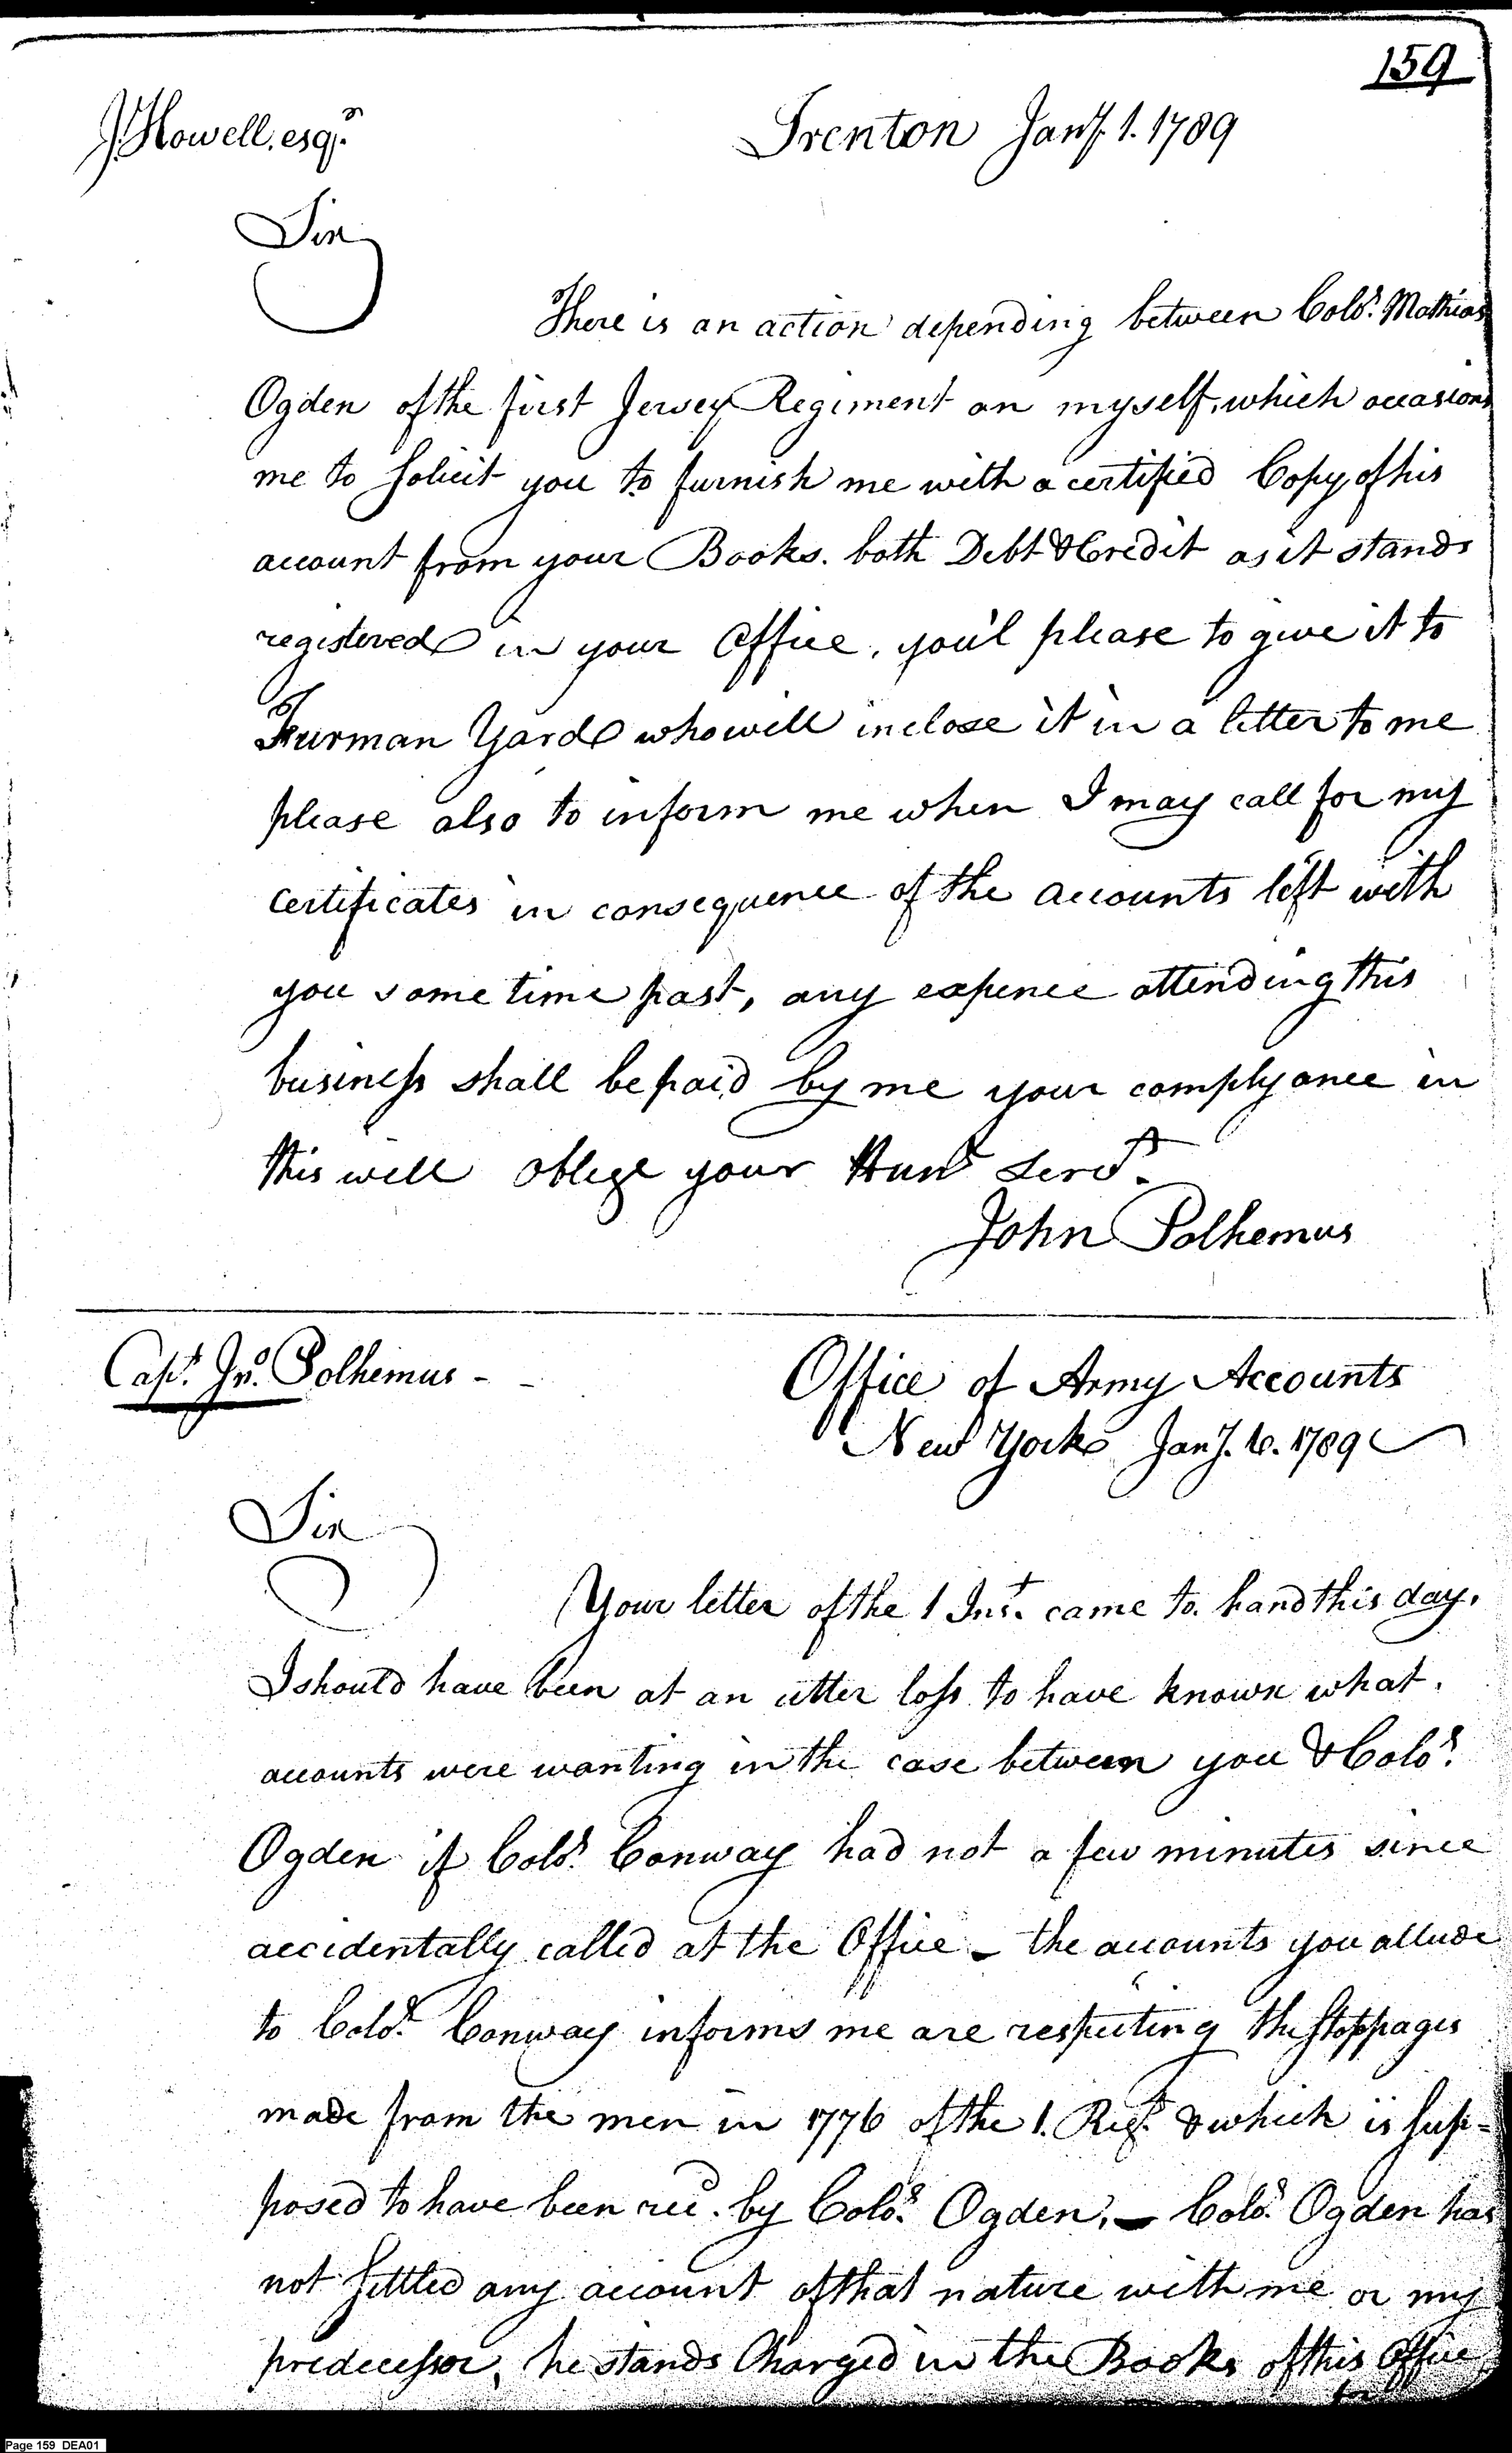 159
J. Howell, esqr.
Trenton Jany. 1. 1789
Sir
There is an action depending between Colo. Mathias
Ogden of the first Jersey Regiment an myself, which occasions
me to Solicit you to furnish me with a certified Copy of his
account from your Books. both Debt & Credit as it stands
registered in your Office, you'l please to give it to
Furman Yard who will inclose it in a letter to me
please also to inform me when I may call for my
Certificates in consequence of the accounts left with
you some time past, any expence attending this
business shall be paid by me your complyance in
this will oblege your Hum Servt.
John Polhemus
Capt. Jno. Polhemus - -
Office of Army Accounts
New York Jany. 6. 1789
Sir
Your letter of the 1 Inst. came to hand this day,
I should have been at an utter loss to have known what
accounts were wanting in the case between you & Colo.
Ogden if Colo. Conway had not a few minutes since
accidentally called at the Office - the accounts you allude
to Colo. Conway informs me are respecting the Stoppages
made from the men in 1776 of the 1. Regt. & which is Sup=
posed to have been recd. by Colo. Ogden, - Colo. Ogden has
not Settled any account of that nature with me or my
predecessor, he stands Charged in the Books of this Office
for
Page 159 DEA01